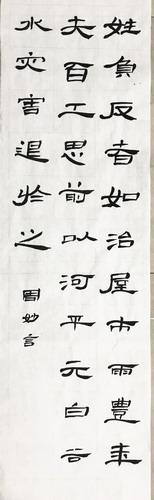 姓負反者如治屋市雨豐年
夫百工恩前以河平元白谷
水灾害退於之
周妙言